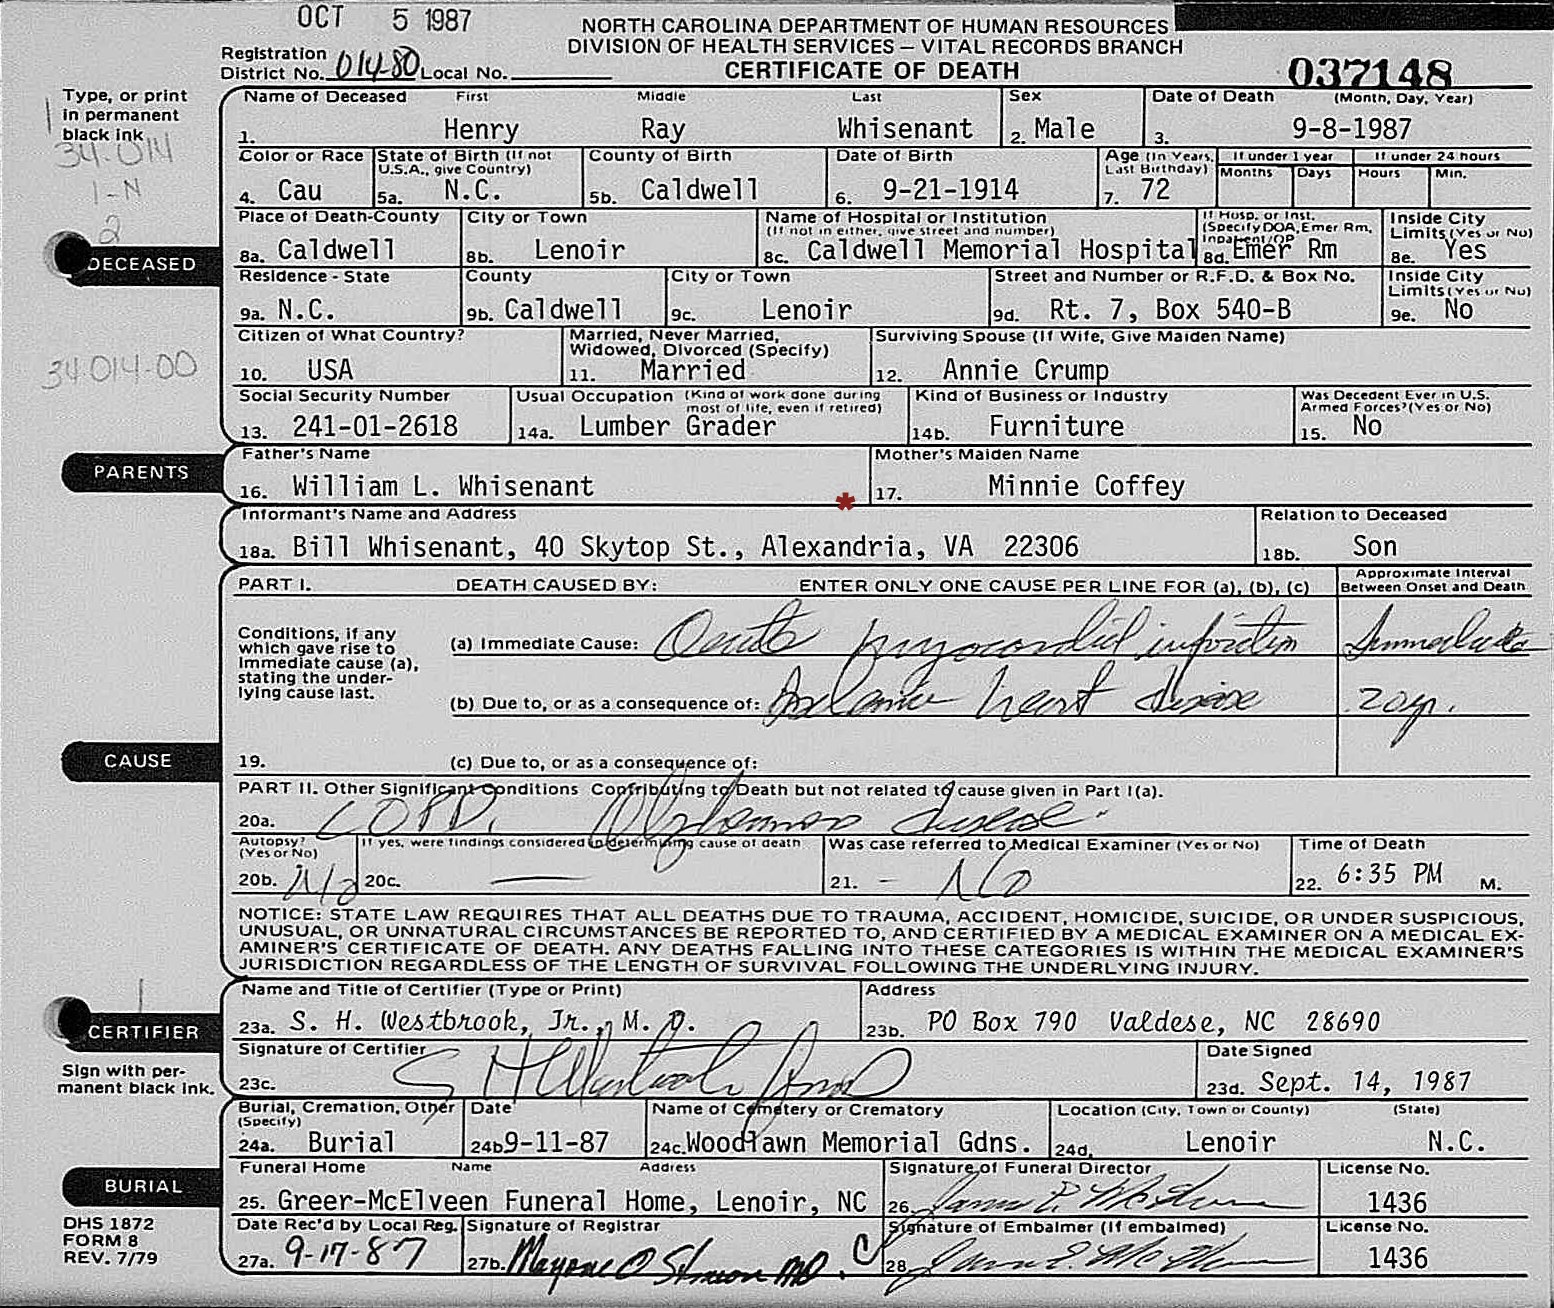 OCT 5 1987
NORTH CAROLINA DEPARTMENT OF HUMAN RESOURCES
DIVISION OF HEALTH SERVICES – VITAL RECORDS BRANCH
CERTIFICATE OF DEATH
Registration
District No. 014-80 Local No.
037148
Type, or print
in permanent
black ink
34.014
1-N
2
34014-00
Name of Deceased First Middle Last Sex Date of Death (Month, Day, Year)
1. Henry Ray Whisenant 2. Male 3. 9-8-1987
Color or Race State of Birth (If not U.S.A., give Country) County of Birth Date of Birth Age (In Years, Last Birthday) If under 1 year If under 24 hours
Months Days Hours Min.
4. Cau 5a. N.C. 5b. Caldwell 6. 9-21-1914 7. 72
DECEASED
Place of Death-County City or Town Name of Hospital or Institution (If not in either, give street and number) If Hosp. or Inst. (Specify DOA, Emer Rm, Inpatient/OP Inside City Limits (Yes or No)
8a. Caldwell 8b. Lenoir 8c. Caldwell Memorial Hospital 8d. Emer Rm 8e. Yes
Residence - State County City or Town Street and Number or R.F.D. & Box No. Inside City Limits (Yes or No)
9a. N.C. 9b. Caldwell 9c. Lenoir 9d. Rt. 7, Box 540-B 9e. No
Citizen of What Country? Married, Never Married, Widowed, Divorced (Specify) Surviving Spouse (If Wife, Give Maiden Name)
10. USA 11. Married 12. Annie Crump
Social Security Number Usual Occupation (Kind of work done during most of life, even if retired) Kind of Business or Industry Was Decedent Ever in U.S. Armed Forces? (Yes or No)
13. 241-01-2618 14a. Lumber Grader 14b. Furniture 15. No
PARENTS
Father's Name Mother's Maiden Name
16. William L. Whisenant * 17. Minnie Coffey
Informant's Name and Address Relation to Deceased
18a. Bill Whisenant, 40 Skytop St., Alexandria, VA 22306 18b. Son
PART I. DEATH CAUSED BY: ENTER ONLY ONE CAUSE PER LINE FOR (a), (b), (c) Approximate Interval Between Onset and Death
Conditions, if any
which gave rise to
immediate cause (a),
stating the under-
lying cause last.
(a) Immediate Cause: Acute myocardial infarction Immediate
(b) Due to, or as a consequence of: heart disease 20 yr.
CAUSE
19. (c) Due to, or as a consequence of:
PART II. Other Significant Conditions Contributing to Death but not related to cause given in Part I(a).
20a. COPD, Alzheimers disease.
Autopsy? (Yes or No) If yes, were findings considered in determining cause of death Was case referred to Medical Examiner (Yes or No) Time of Death
20b. No 20c. — 21. - No 22. 6:35 PM M.
NOTICE: STATE LAW REQUIRES THAT ALL DEATHS DUE TO TRAUMA, ACCIDENT, HOMICIDE, SUICIDE, OR UNDER SUSPICIOUS,
UNUSUAL, OR UNNATURAL CIRCUMSTANCES BE REPORTED TO, AND CERTIFIED BY A MEDICAL EXAMINER ON A MEDICAL EX-
AMINER'S CERTIFICATE OF DEATH. ANY DEATHS FALLING INTO THESE CATEGORIES IS WITHIN THE MEDICAL EXAMINER'S
JURISDICTION REGARDLESS OF THE LENGTH OF SURVIVAL FOLLOWING THE UNDERLYING INJURY.
Name and Title of Certifier (Type or Print) Address
23a. S. H. Westbrook, Jr., M. D. 23b. PO Box 790 Valdese, NC 28690
CERTIFIER
Sign with per-
manent black ink.
Signature of Certifier Date Signed
23c. S H Westbrook Jr MD 23d. Sept. 14, 1987
Burial, Cremation, Other (Specify) Date Name of Cemetery or Crematory Location (City, Town or County) (State)
24a. Burial 24b. 9-11-87 24c. Woodlawn Memorial Gdns. 24d. Lenoir N.C.
BURIAL
Funeral Home Name Address Signature of Funeral Director License No.
25. Greer-McElveen Funeral Home, Lenoir, NC 26. 1436
DHS 1872
FORM 8
REV. 7/79
Date Rec'd by Local Reg. Signature of Registrar Signature of Embalmer (If embalmed) License No.
27a. 9-17-87 27b. MD. 28. 1436